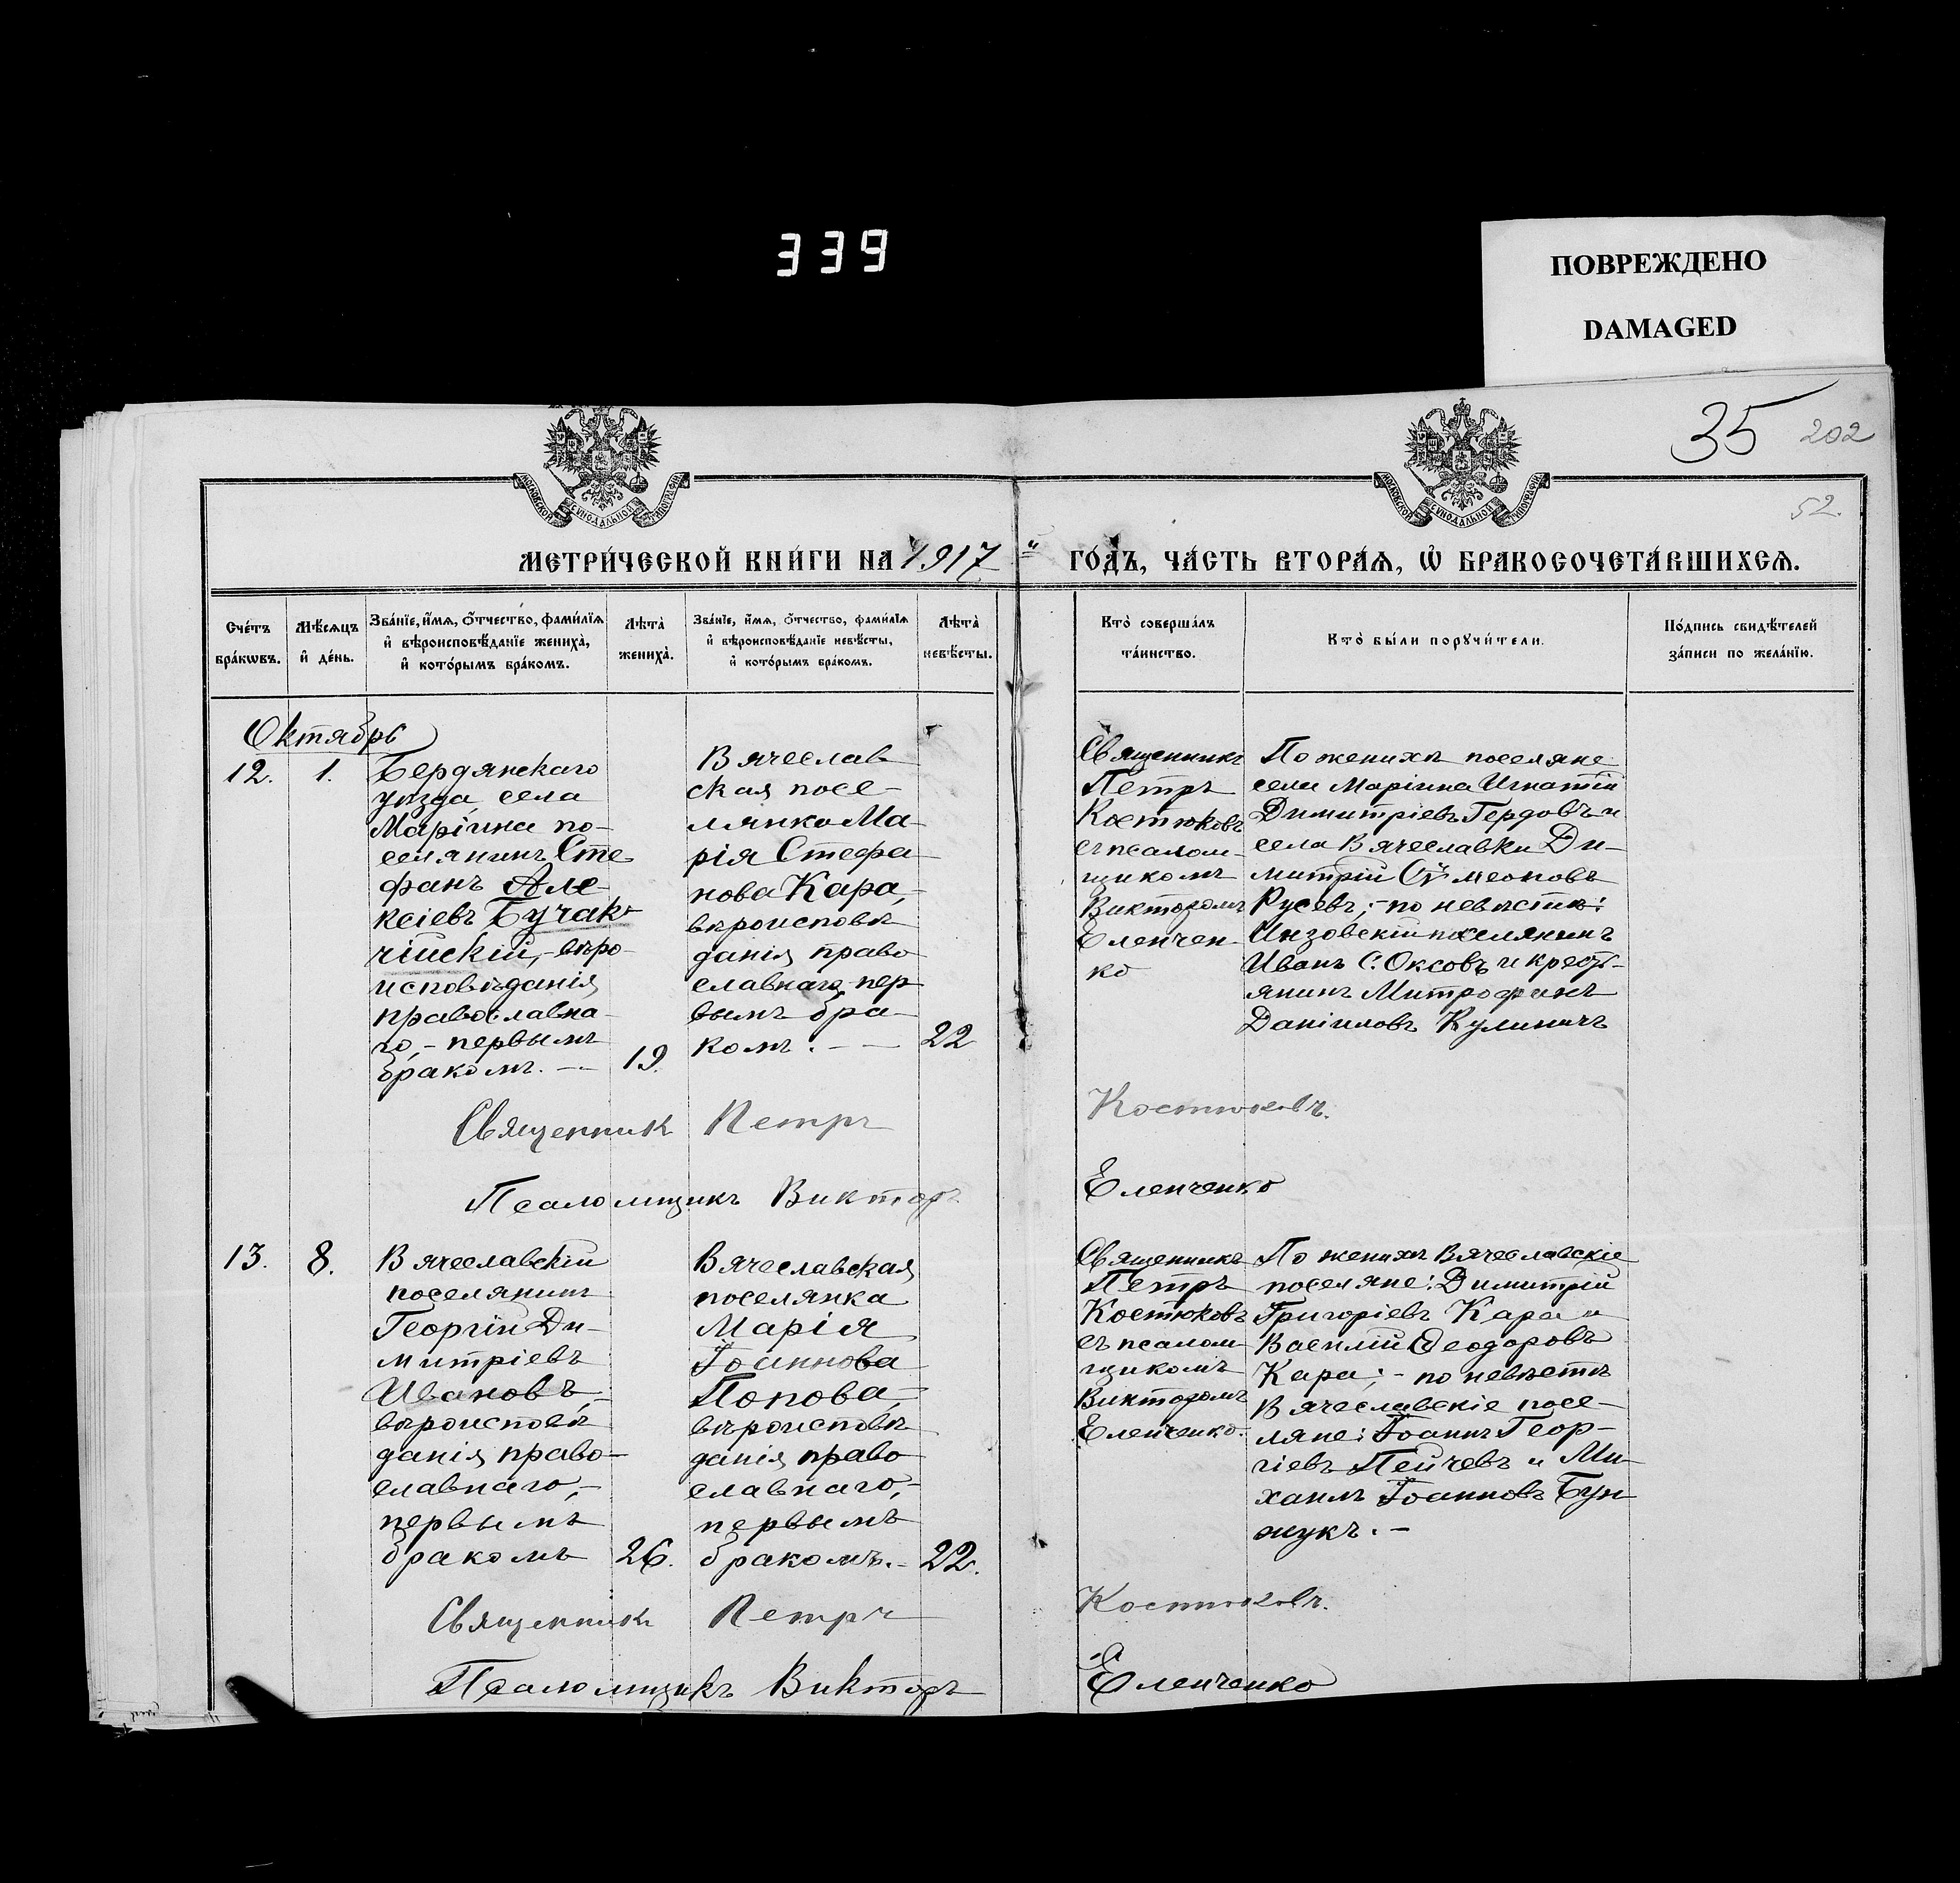 339
ПОВРЕЖДЕНО
DAMAGED
35 202
52.
МЕТРИ́ЧЕСКОЙ КНИ́ГИ НА 1917
ГО́ДЪ, ЧА́СТЬ ВТОРА́Я, Ѡ БРАКОСОЧЕТА́ВШИХСЯ.
Сче́тъ бра́кѡвъ.
Мѣ́сяцъ и де́нь.
Зва́нїе, и́мя, о́тчество, фами́лїя
и вѣроисповѣ́данїе жениха̀,
и кото́рымъ бра́комъ.
Лѣта̀ жениха̀.
Зва́нїе, и́мя, о́тчество, фами́лїя
и вѣроисповѣ́данїе невѣ́сты,
и кото́рымъ бра́комъ.
Лѣта̀ невѣ́сты.
Кто̀ соверша́лъ
та́инство.
Кто̀ бы́ли порꙋчи́тели.
По́дпись свидѣ́телей
за́писи по жела́нїю.
Октябрь
12. 1.
Бердянскаго
уѣзда села
Маріина по-
селянинъ Сте
фанъ Але-
ксіевъ Бучак-
чійскій,- вѣро-
исповѣданія
православна-
го,- первымъ
бракомъ. — 19.
Вячеслав
ская посе-
лянка Ма-
рія Стефа
нова Кара,-
вѣроисповѣ
данія право
славнаго пер
вымъ бра-
комъ. — 22
Священникъ
Петръ
Костюковъ
съ псалом-
щикомъ
Викторомъ
Еленчен-
ко
По женихѣ поселяне:
села Маріина Игнатій
Димитріевъ Гердовъ и
села Вячеславки Ди-
митрій Сѵмеоновъ
Русевъ;- по невѣстѣ:
Инзовскій поселянинъ
Иванъ С. Оксовъ и крест-
янинъ Митрофанъ
Даніиловъ Кулиничъ
Священник Петръ Костюковъ.
Псаломщикъ Викторъ Еленченко
13. 8.
Вячеславскій
поселянинъ
Георгій Ди-
митріевъ
Ивановъ,-
вѣроисповѣ
данія право-
славнаго,-
первымъ
бракомъ 26.
Вячеславская
поселянка
Марія
Іоаннова
Попова,-
вѣроисповѣ
данія право
славнаго,-
первымъ
бракомъ.- 22.
Священникъ
Петръ
Костюковъ
съ псалом-
щикомъ
Викторомъ
Еленченко.
По женихѣ Вячеславскіе
поселяне: Димитрій
Григоріевъ Кара и
Василій Ѳеодоровъ
Кара;- по невѣстѣ
Вячеславскіе посе-
ляне: Іоаннъ Геор-
гіевъ Пейчевъ и Ми-
хаилъ Іоанновъ Бун
жукъ.-
Священникъ Петръ Костюковъ.
Псаломщикъ Викторъ Еленченко